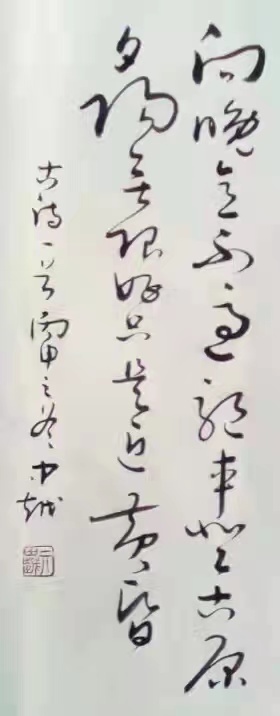 向晚意不适驱车登古原
夕阳无限好只是近黄昏
古诗一首丙申之冬中越